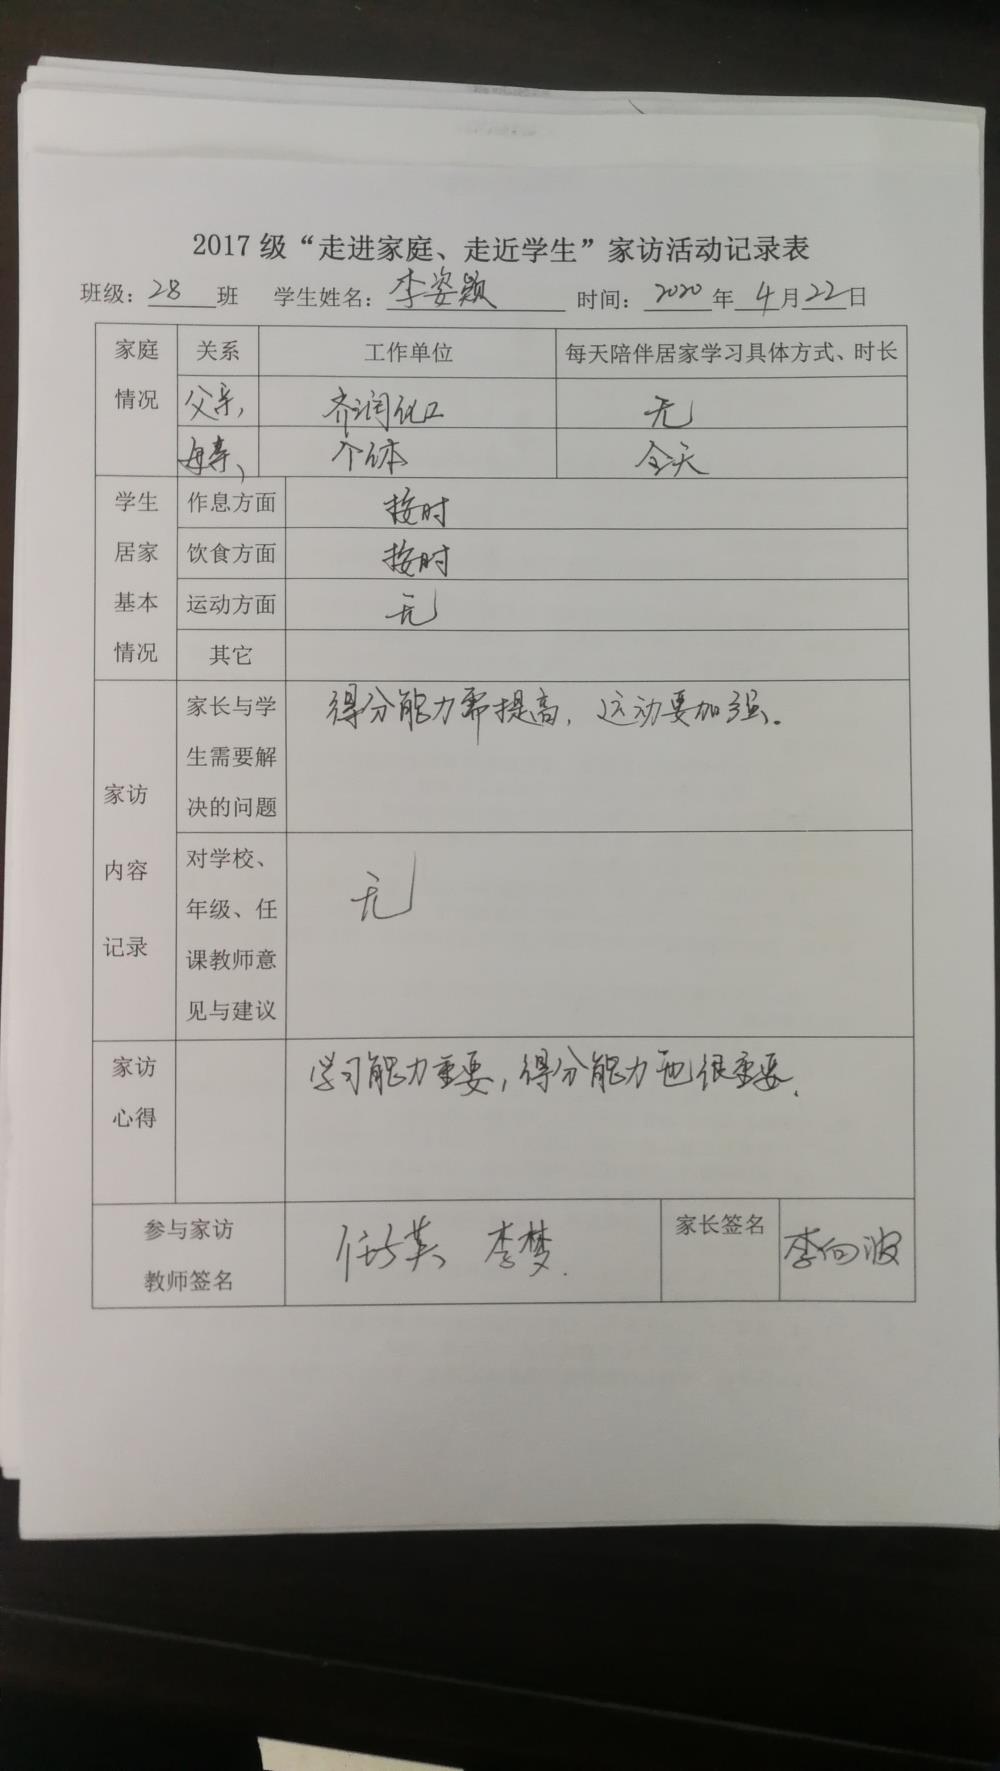 2017 级“走进家庭、走近学生”家访活动记录表
班级：28班 学生姓名：李姿颖 时间：2020年4月22日
家庭情况 关系 工作单位 每天陪伴居家学习具体方式、时长
父亲， 齐润化工 无
母亲， 个体 全天
学生居家基本情况 作息方面 按时
饮食方面 按时
运动方面 无
其它
家访内容记录 家长与学生需要解决的问题 得分能力需提高，运动要加强。
对学校、年级、任课教师意见与建议 无
家访心得 学习能力重要，得分能力也很重要.
参与家访教师签名 李梦. 家长签名 李向波